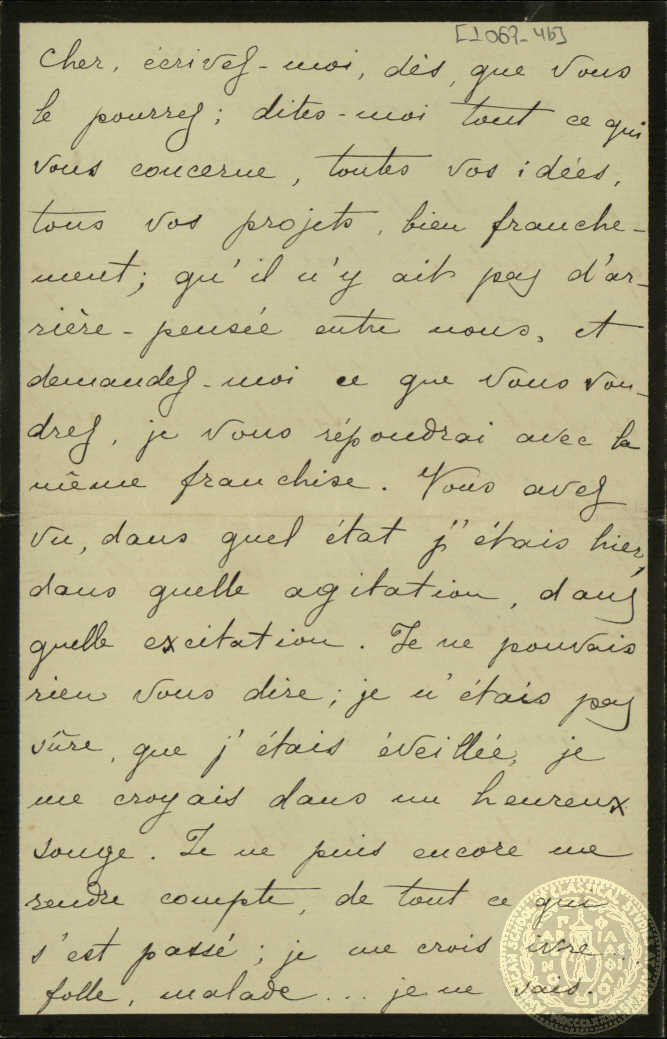 [1069-4b]
Cher, écrivez-moi, dès, que vous
le pourrez; dites-moi tout ce qui
vous concerne, toutes vos idées,
tous vos projets, bien franche-
ment; qu'il n'y ait pas d'ar-
rière-pensée entre nous, et
demandez-moi ce que vous vou-
drez, je vous répondrai avec la
même franchise. Vous avez
vu, dans quel état j'étais hier,
dans quelle agitation, dans
quelle excitation. Je ne pouvais
rien vous dire; je n'étais pas
sûre, que j'étais éveillée, je
me croyais dans un heureux
songe. Je ne puis encore me
rendre compte, de tout ce qui
s'est passé; je me crois ivre...
folle, malade... je ne sais.